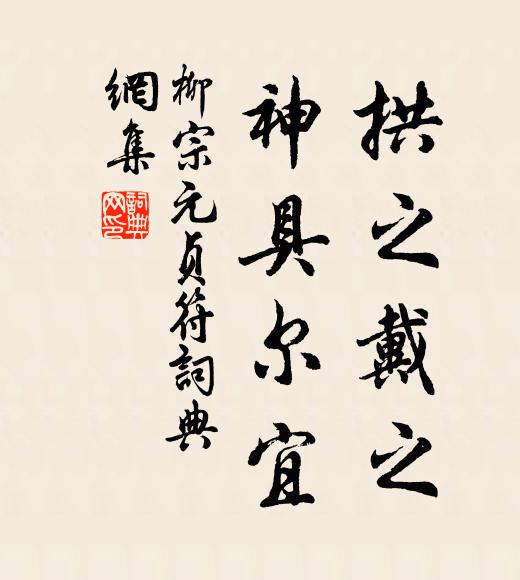 拱之戴之
神具尔宜
柳宗元貞符詞典
網集
詞典
网印